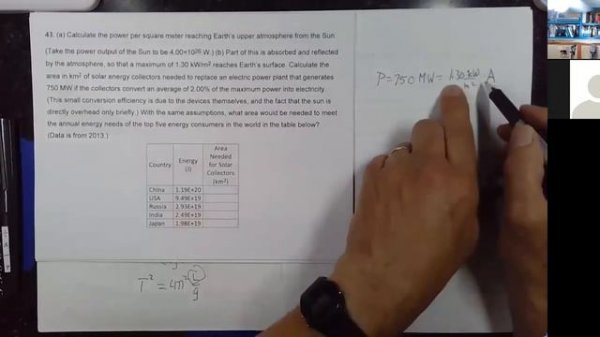 43. (a) Calculate the power per square meter reaching Earth's upper atmosphere from the Sun.
(Take the power output of the Sun to be 4.00×10²⁶ W.) (b) Part of this is absorbed and reflected
by the atmosphere, so that a maximum of 1.30 kW/m² reaches Earth's surface. Calculate the
area in km² of solar energy collectors needed to replace an electric power plant that generates
750 MW if the collectors convert an average of 2.00% of the maximum power into electricity.
(This small conversion efficiency is due to the devices themselves, and the fact that the sun is
directly overhead only briefly.) With the same assumptions, what area would be needed to meet
the annual energy needs of the top five energy consumers in the world in the table below?
(Data is from 2013.)
Country Energy (J) Area Needed for Solar Collectors (km²)
China 1.19E+20
USA 9.49E+19
Russia 2.93E+19
India 2.49E+19
Japan 1.98E+19
P = 750 MW = 1.30 kW/m² A
T² = 4π² L/g